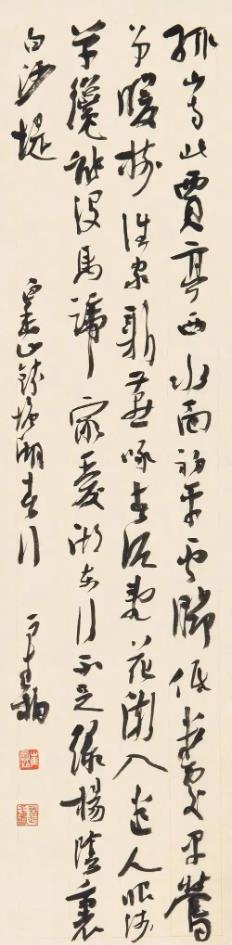 孤山寺北賈亭西水面初平雲腳低幾處早鶯
爭暖樹誰家新燕啄春泥亂花漸入迷人眼淺
草纔能沒馬蹄最愛湖東行不足綠楊陰裏
白沙堤
香山錢塘湖春行